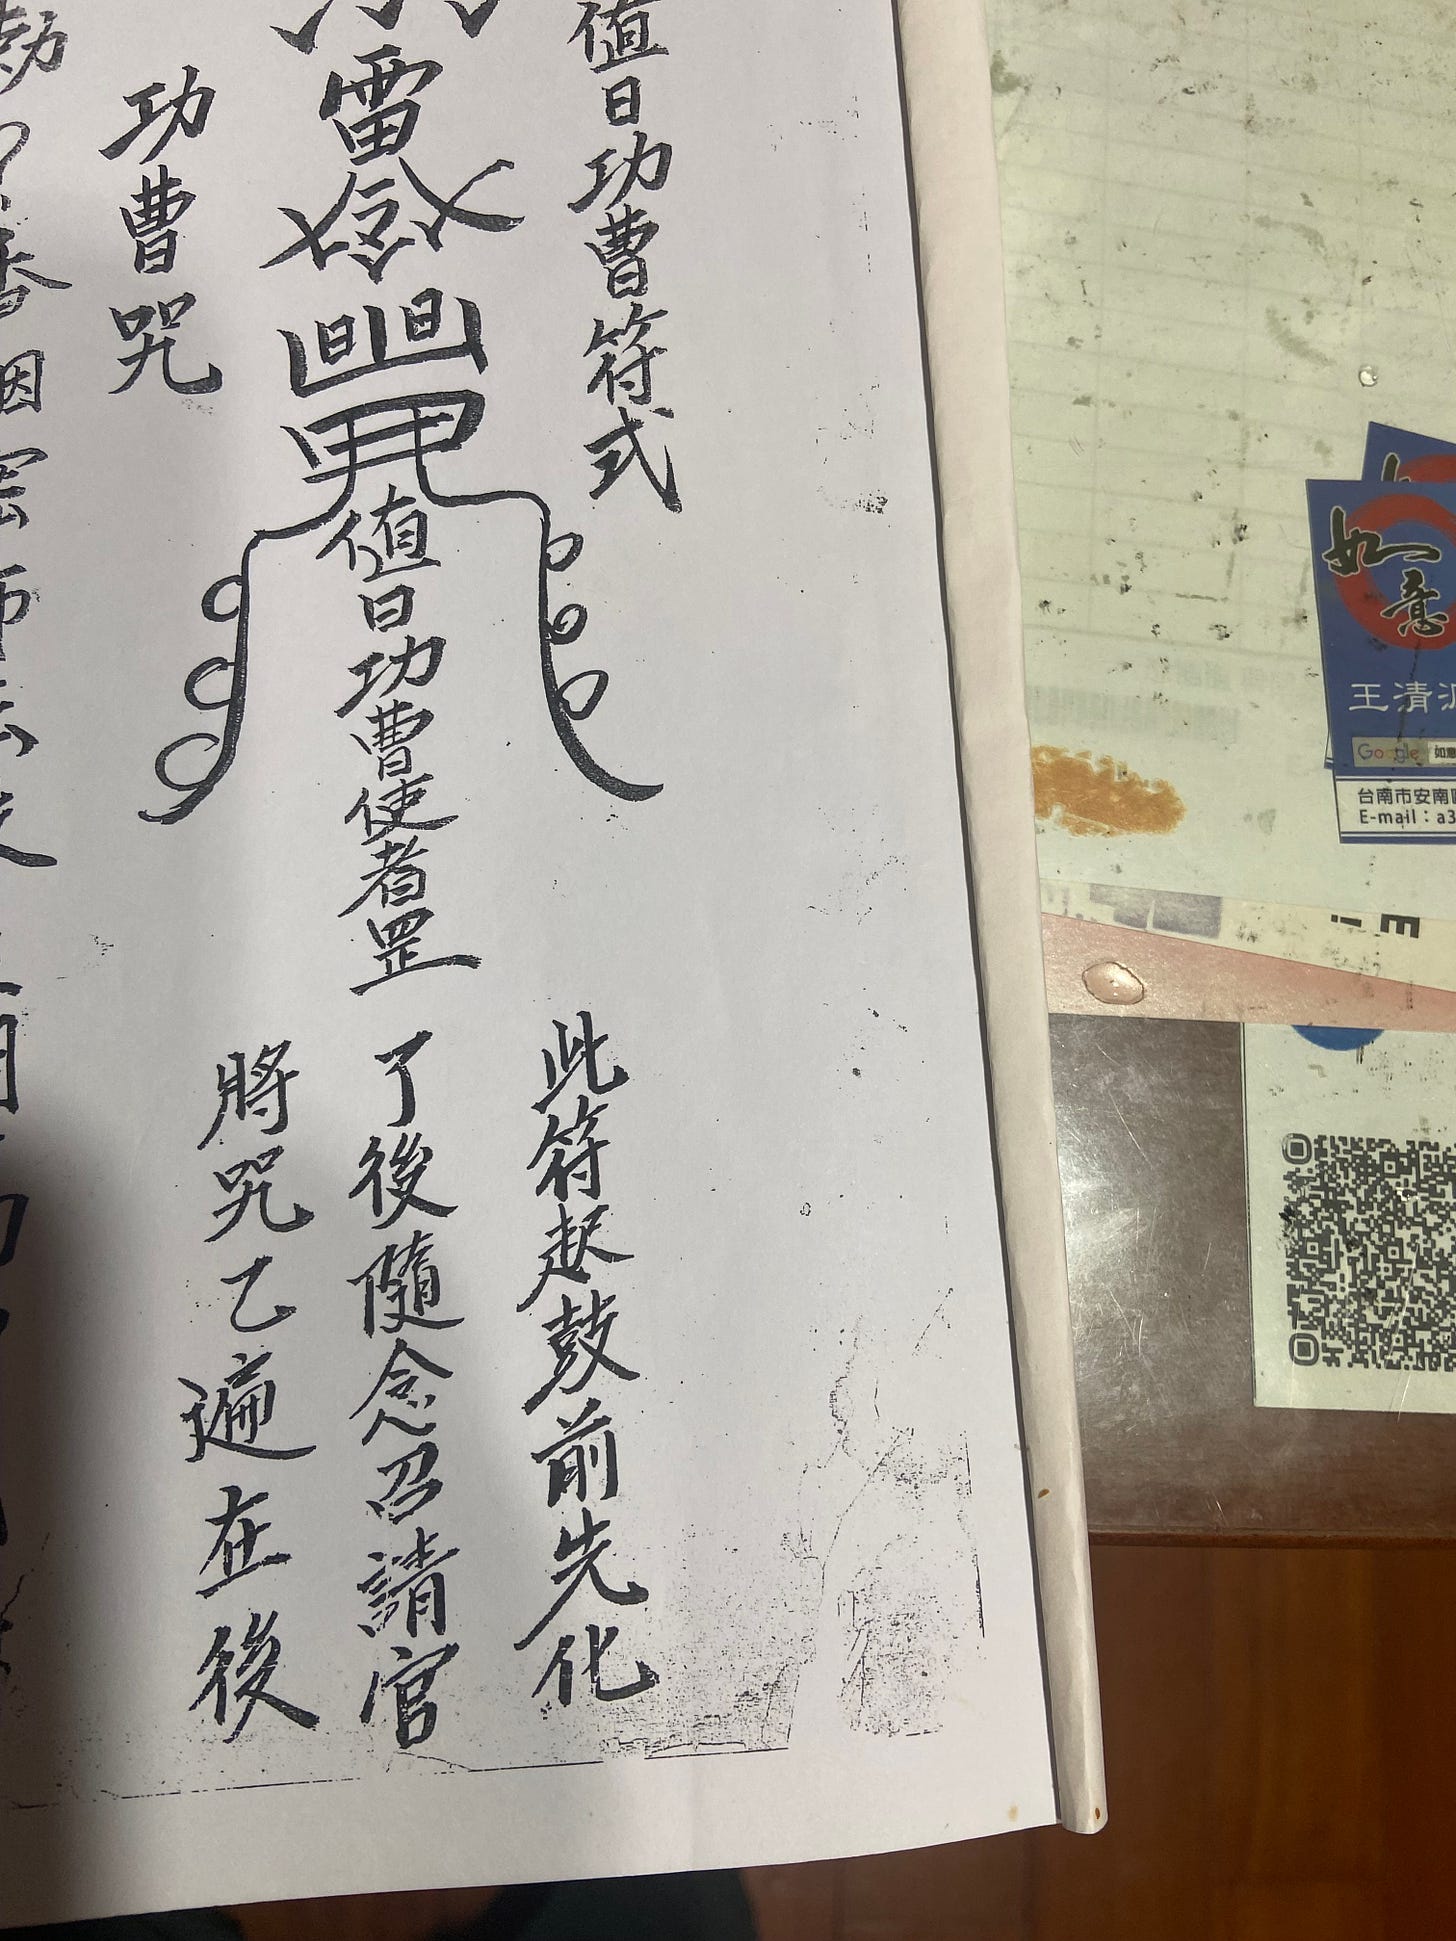 值日功曹符式
雷令
值日功曹使者罡
此符起鼓前先化
了後隨念召請官
將咒乙遍在後
功曹咒
如意
王清
Google
台南市安南
E-mail：a3